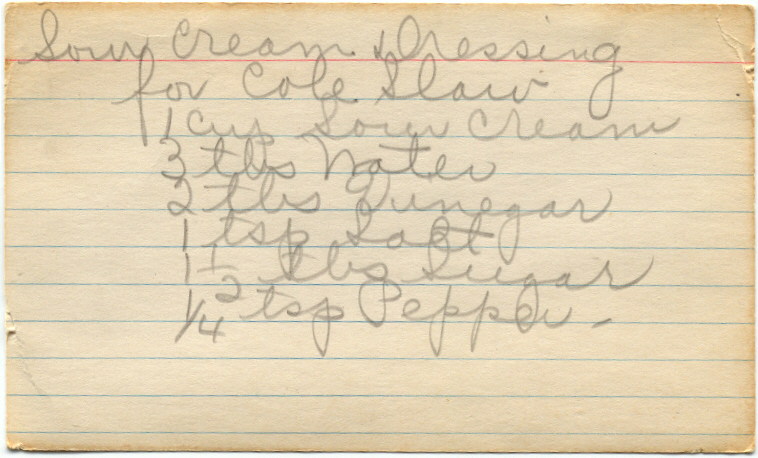 Sour Cream Dressing
for Cole Slaw
1 cup Sour Cream
3 tbs Water
2 tbs Vinegar
1 tsp Salt
1 1/2 tbs Sugar
1/4 tsp Pepper -